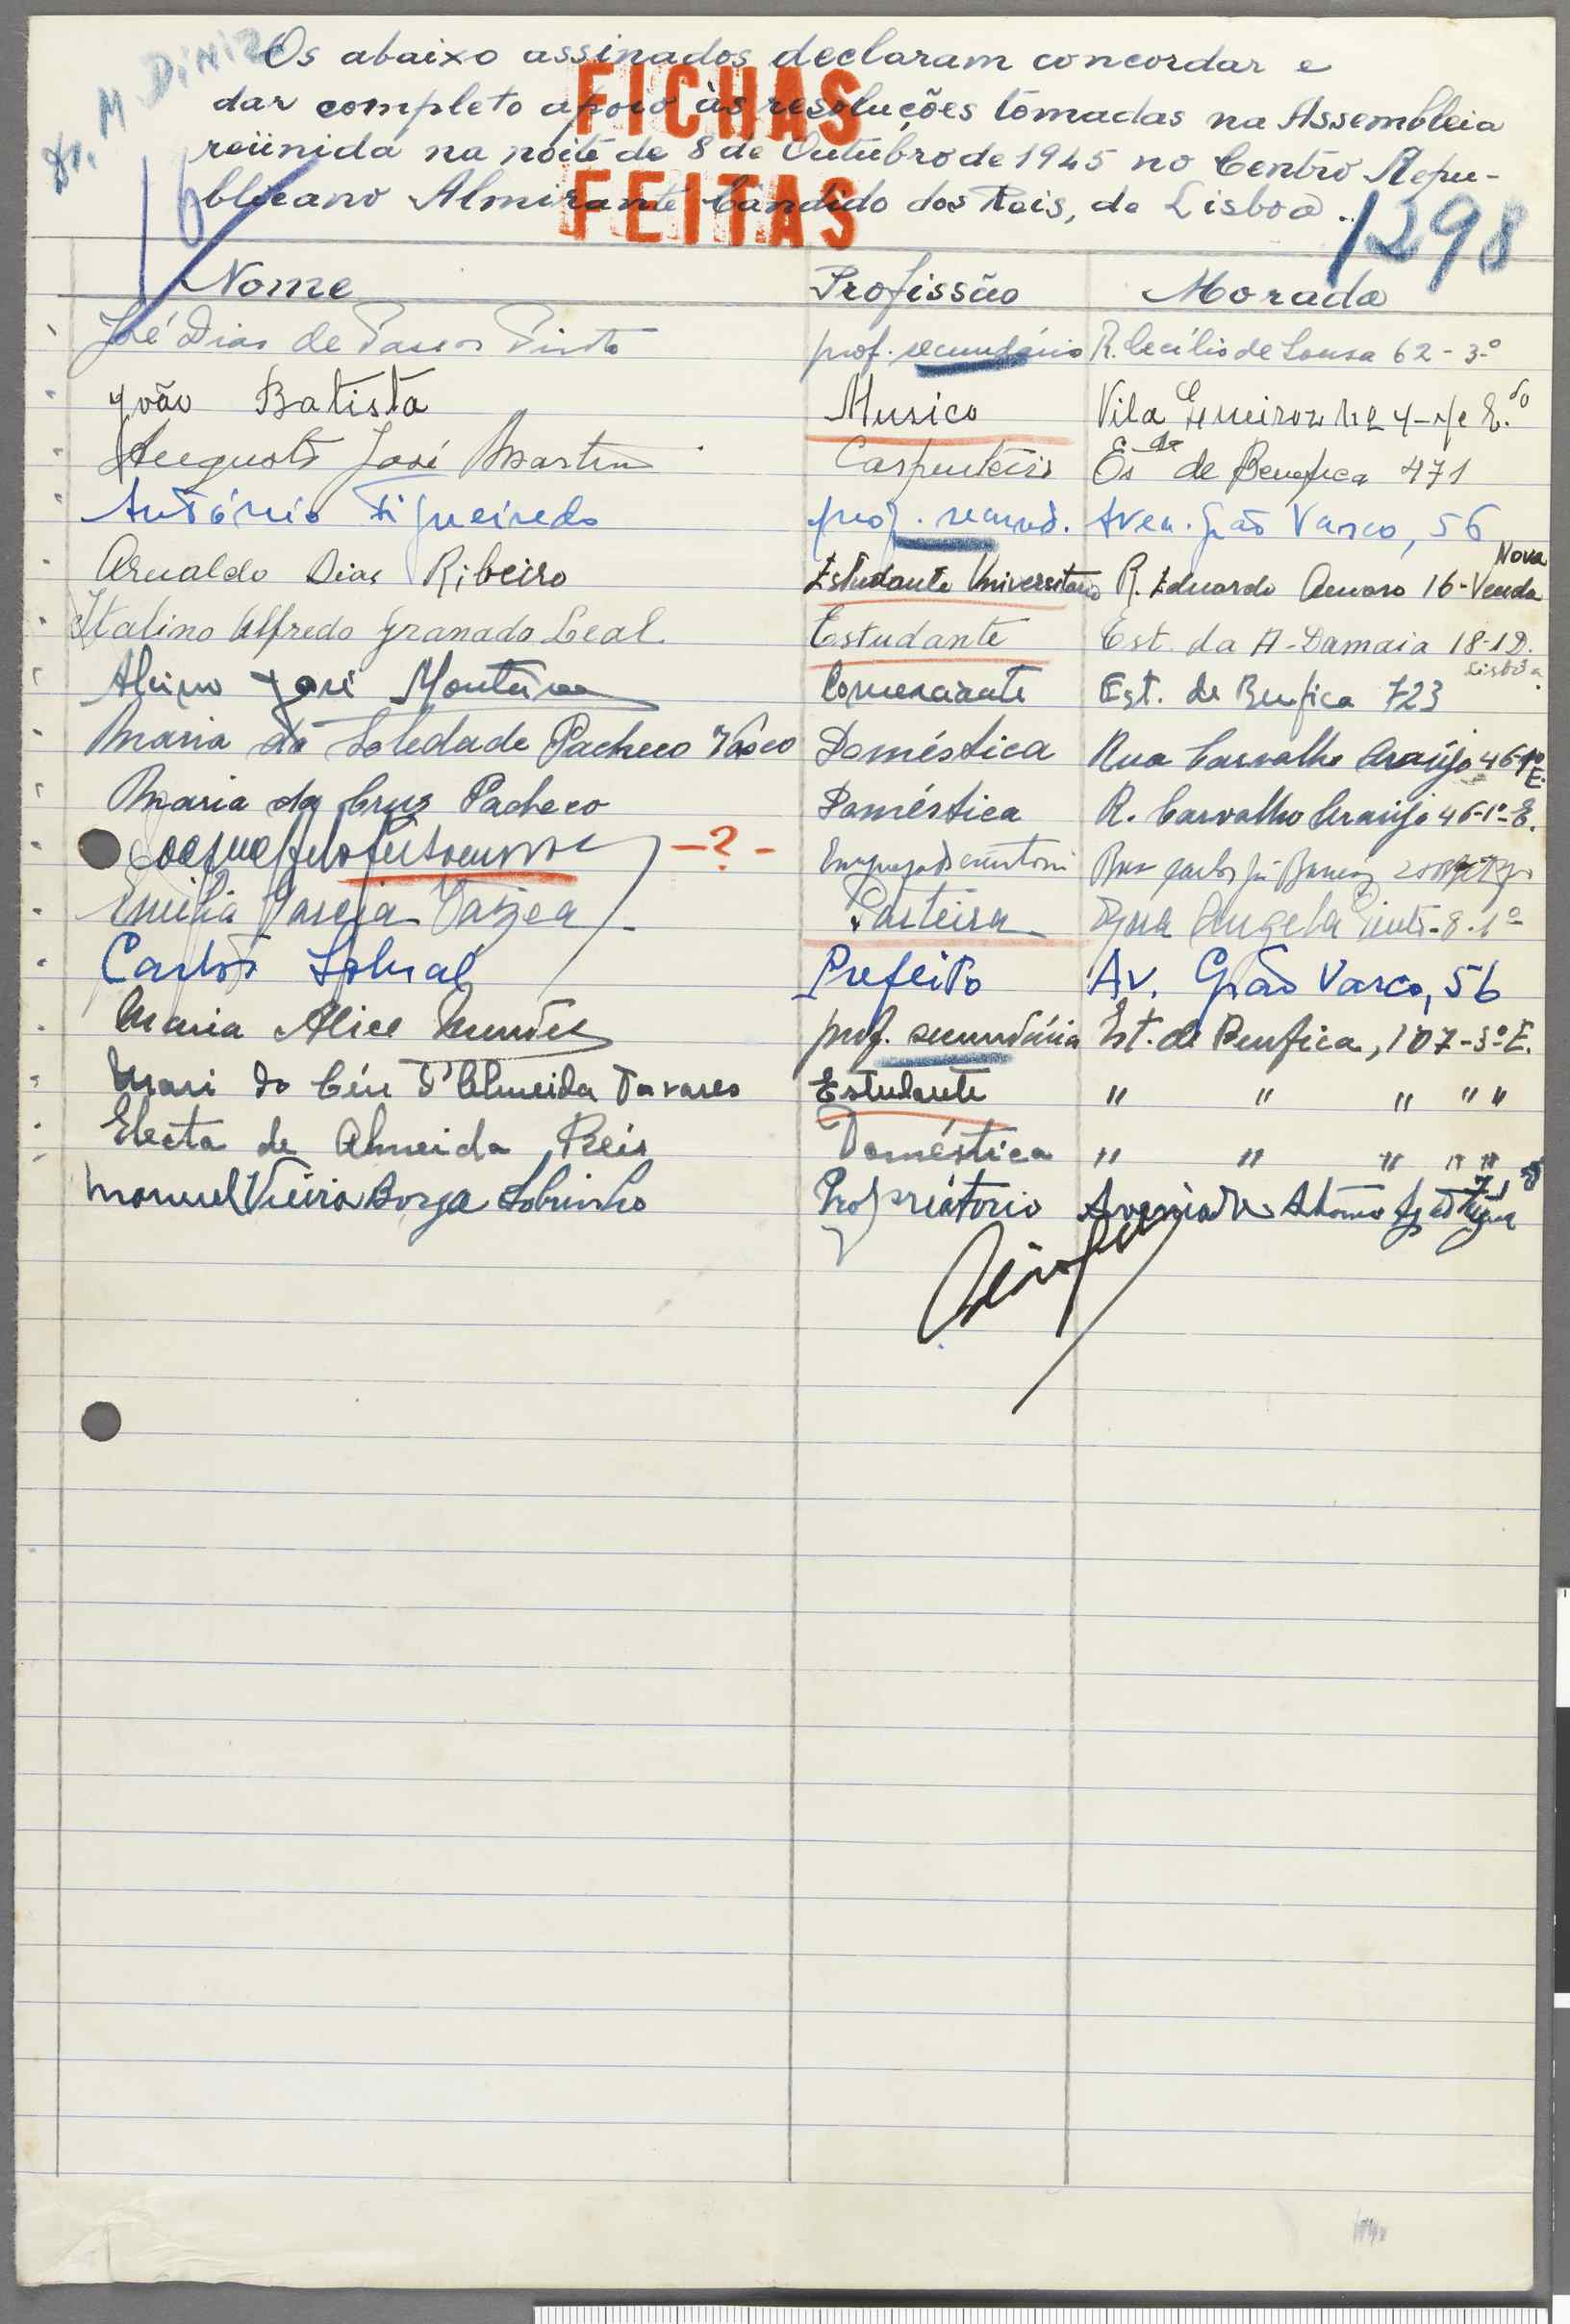 Dr. M Diniz
Os abaixo assinados declaram concordar e
dar completo apoio às resoluções tomadas na Assembleia
reünida na noite de 8 de Outubro de 1945 no Centro Repu-
blicano Almirante Cândido dos Reis, de Lisboa.
FICHAS
FEITAS
16
1298
Nome Profissão Morada
José Dias de Passos Pinto prof. secundário R. Cecílio de Sousa 62-3º
João Batista Musico Vila
Augusto José Martins Carpinteiro de Benefica 471
António Figueiredo prof. secund. Aven. Grão Vasco, 56
Arnaldo Dias Ribeiro Estudante Universitário R. Eduardo 16-Venda Nova
Italino Alfredo Granado Leal Estudante Est. da A-Damaia 18-1D. Lisboa
Alcino José Monteiro Comerciante Est. de Benfica 723
Maria da Soledade Pacheco Doméstica Rua Carvalho Araújo 46-1º E.
Maria da Cruz Pacheco Doméstica R. Carvalho Araújo 46-1º-E.
-?-
Emilia Garcia Parteira Angela Pinto-8-1º
Carlos Sobral Prefeito Av. Grão Vasco, 56
Maria Alice prof. secundária Est. de Benfica, 107-3º E.
Mari do Céu d'Almeida Tavares Estudante " " " " "
Electa de Almeida Reis Doméstica " " " " "
Manuel Vieira Borga Sobrinho Propriátorio